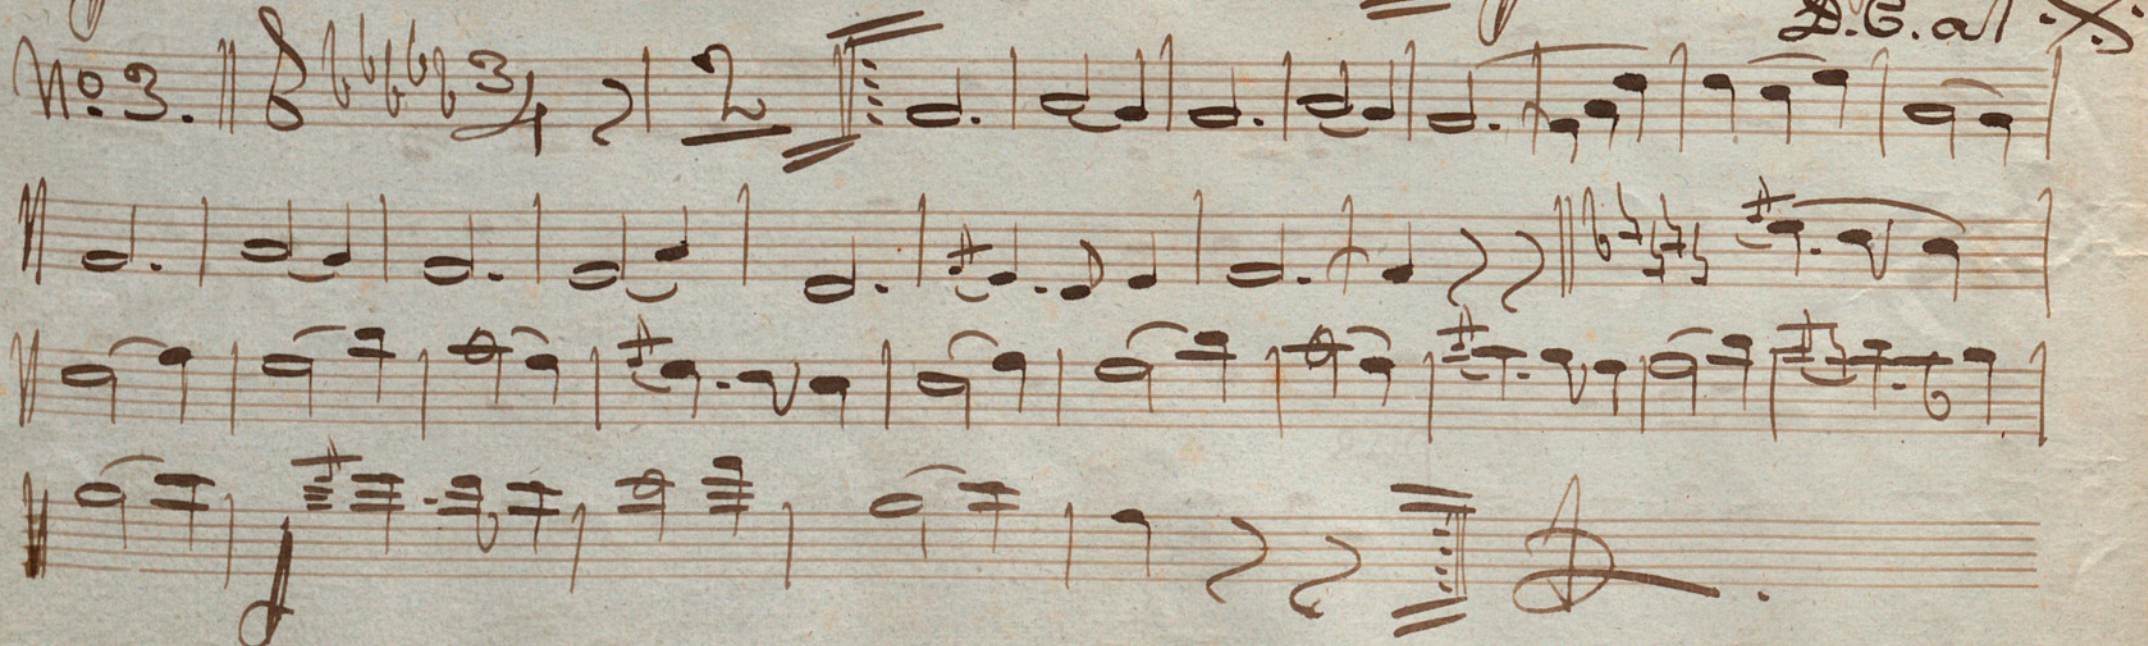 D.C. al
No. 3. 3/4 2